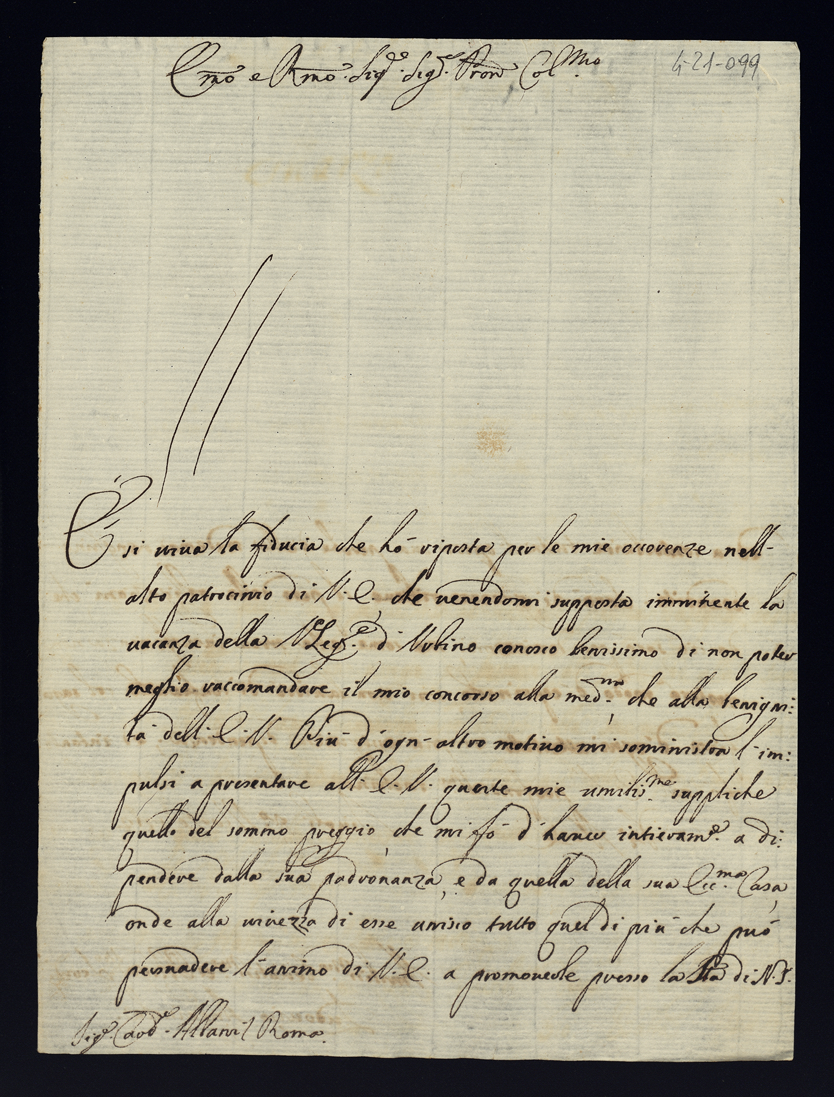 Emo e Rmo Sigre Sigre Pron Colmo
4-21-099
È si viva la fiducia che hò riposta per le mie occorenze nell-
alto patrocinio di V. E. che venendomi supposta imminente la
vacanza della V Legne d'Urbino conosco benissimo di non poter
meglio raccomandare il mio concorso alla medma che alla benigni:
tà dell' E. V. Più d'ogn' altro motivo mi soministra l'im:
pulsi a presentare all' E. V. queste mie umilisme suppliche
quello del sommo preggio, che mi fò d'haver intieramte a di:
pendere dalla sua padronanza, e da quella della sua Eccma Casa,
onde alla vivezza di esse unisco tutto quel di più che può
persuadere l'animo di V. E. a promoverle presso la Stà di N. S.
Sigr Card. Albani Roma